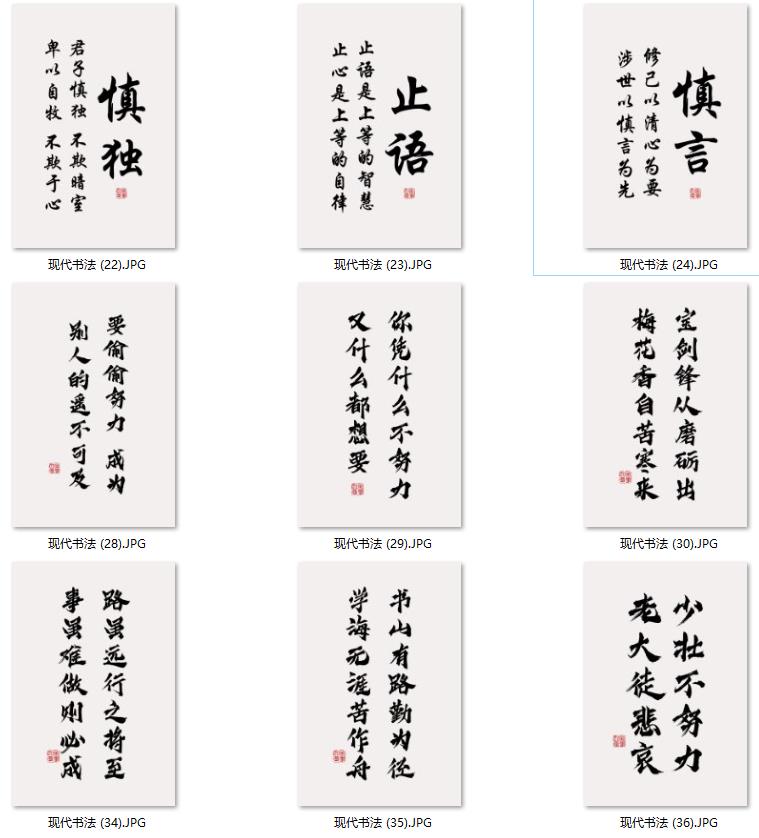 慎独
君子慎独 不欺暗室
卑以自牧 不欺于心
现代书法 (22).JPG
止语
止语是上等的智慧
止心是上等的自律
现代书法 (23).JPG
慎言
修己以清心为要
涉世以慎言为先
现代书法 (24).JPG
要偷偷努力 成为
别人的遥不可及
现代书法 (28).JPG
你凭什么不努力
又什么都想要
现代书法 (29).JPG
宝剑锋从磨砺出
梅花香自苦寒来
现代书法 (30).JPG
路虽远行之将至
事虽难做则必成
现代书法 (34).JPG
书山有路勤为径
学海无涯苦作舟
现代书法 (35).JPG
少壮不努力
老大徒悲哀
现代书法 (36).JPG